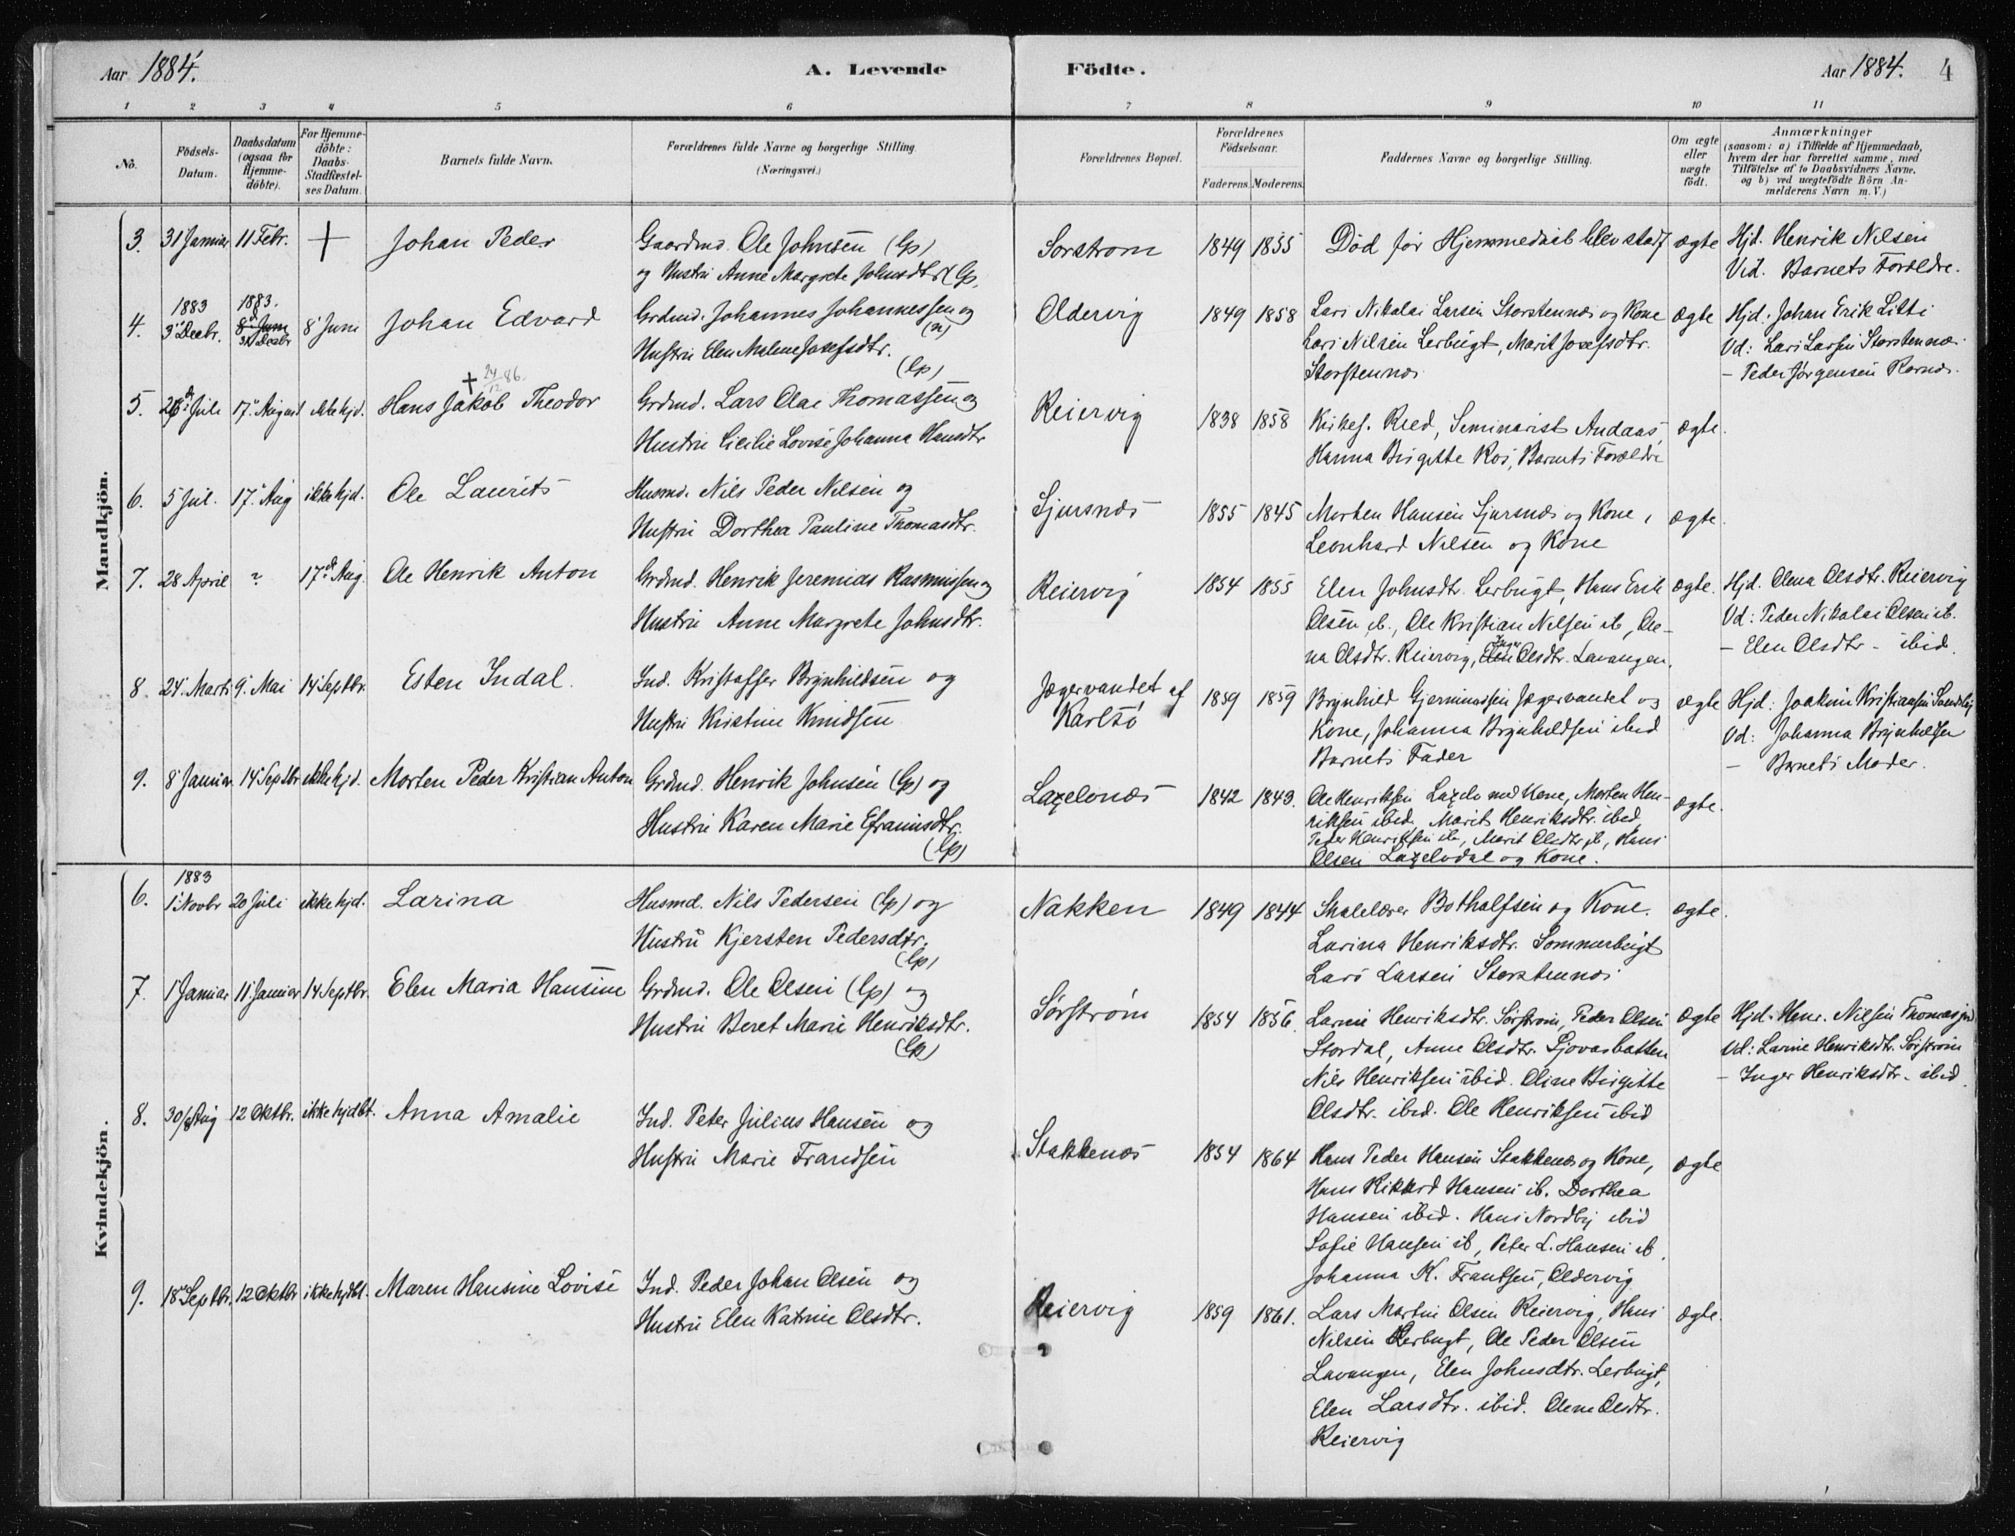 Aar 1884. A. Levende Födte. Aar 1884. 4
1 2 3 4 5 6 7 8 9 10 11
No.
Födsels-Datum.
Daabsdatum (ogsaa for Hjemme-döbte).
For Hjemme-döbte: Daabs-Stadfæstel-ses Datum.
Barnets fulde Navn.
Forældrenes fulde Navne og borgerlige Stilling.
(Næringsvei.)
Forældrenes Bopæl.
Forældrenes Födselsaar.
Faderens. Moderens.
Faddernes Navne og borgerlige Stilling.
Om ægte eller uægte födt.
Anmærkninger
(saasom: a) i Tilfælde af Hjemmedaab,
hvem der har forrettet samme, med
Tilföielse af to Daabsvidners Navne,
og b) ved uægtefödte Börn An-
melderens Navn m. V.)
Mandkjön.
3. 31 Januar 11 Febr. + Johan Peder
Gaardmd. Ole Johnsen (lp)
og Hustru Anne Margrete Johnsdtr (lp)
Sorstrom 1849 1855
Död før Hjemmedaab blev stadf
ægte
Hjd. Henrik Nilsen
Vid. Barnets Forældre.
4. 1883 3 Decbr. 1883. 8 Juni 31 Decbr 8 Juni Johan Edvard
Grdmd. Johannes Johannessen og
(n)
Hustru Elen Malene Josefsdtr.
(lp)
Oldervig 1849 1858
Lars Nikolai Larsen Storstennes og Kone
Lars Nilsen Lerbugt, Marit Josefsdtr.
Storstennes
ægte
Hjd. Johan Erik Litti
Vd: Lars Larsen Storstennæs
- Peder Jørgensen Rornes.
5. 26 Juli 17 August ikke hjd. Hans Jakob Theodor
+ 24/12 86.
Grdmd. Lars Olai Thomassen og
Hustru Cicilie Lovise Johanna Hansdtr
Reiervig 1838 1858
Kirkes. Ried, Seminarist Andaas,
Hanna Birgitte Roi, Barnets Forældre
ægte.
6. 5 Jul. 17 Aug ikke hjd. Ole Laurits
Husmd. Nils Peder Nilsen og
Hustru Dorthea Pauline Thomasdtr.
Sjursnes 1855 1845
Morten Hansen Sjursnes og Kone,
Leonhard Nilsen og Kone
ægte.
7. 28 April ? 17de Aug. Ole Henrik Anton
Grdmd. Henrik Jeremias Rasmussen og
Hustru Anne Margrete Johnsdtr.
Reiervig 1854 1855
Elen Johnsdtr. Lerbugt, Hans Erik
Olsen ib., Ole Kristian Nilsen ib, Ole-
na Olsdtr. Reiervig, Elen Inger Olsdtr. Lavangen.
ægte.
Hjd. Olena Olsdtr. Reiervig
Vd: Peder Nikolai Olsen ib.
- Elen Olsdtr - ibid.
8. 24 Marts 9 Mai 14 Septbr. Esten Indal.
Ind. Kristoffer Brynhildsen og
Hustru Kristine Knudsen
Jægervandet af
Karlsö 1859 1859
Brynhild Gjermundsen Jægervandet og
Kone, Johanna Brynhildsen ibid
Barnets Fader
ægte
Hjd: Joakim Kristiansen
Vd: Johanna Brynhilsen
- Barnets Moder.
9. 8 Januar 14 Septbr ikke hjd. Morten Peder Kristian Anton
Grdmd. Henrik Johnsen (lp) og
Hustru Karen Marie Efraimsdtr.
(lp)
Laxelvnes 1842 1843.
Ole Henriksen Laxelv med Kone, Morten Hen-
riksen ibid. Marit Henriksdtr. ibid,
Peder Henriksen ib., Marit Olsdtr. ib, Hans
Olsen Laxelvdal og Kone.
ægte.
Kvindekjön.
6. 1883 1 Novbr 20 Juli ikke hjd. Larina
Husmd. Nils Pedersen (lp) og
Hustru Kjersten Pedersdtr.
(lp)
Nakken 1849 1844
Skolelærer Bothalfsen og Kone.
Larina Henriksdtr. Sommerbugt
Lars Larsen Storstennes
ægte.
7. 1 Januar 11 Januar 14 Septbr. Elen Maria Hansine
Grdmd. Ole Olsen (lp) og
Hustru Beret Marie Henriksdtr.
(lp)
Sørstrøm 1854 1856.
Larine Henriksdtr. Sørstrøm, Peder Olsen
Stordal, Anne Olsdtr. Sjovasbatten
Nils Henriksen ibid. Oline Birgitte
Olsdtr. ibid. Ole Henriksen ibid
ægte
Hjd. Henr. Nilsen
Vd: Larine Henriksdtr. Sørstrøm
- Inger Henriksdtr. ibid.
8. 30/8 Aug 12 Oktbr. ikke hjdbt. Anna Amalie
Ind. Peter Julius Hansen og
Hustru Marie Frandsen
Stakkenes 1854 1864
Hans Peder Hansen Stakkenes og Kone,
Hans Rikkard Hansen ib. Dorthea
Hansen ibid. Hans Nordby ibid
Sofie Hansen ib, Peter L. Hansen ib.
Johanna K. Frantsen, Oldervig
ægte
9. 18 Septbr. 12 Oktbr ikke hjdbt. Maren Hansine Lovise
Ind. Peder Johan Olsen og
Hustru Elen Katrine Olsdtr.
Reiervig 1859 1861.
Lars Martin Olsen Reiervig, Hans
Nilsen Lerbugt, Ole Peder Olsen
Lavangen, Elen Johnsdtr. Lerbugt,
Elen Larsdtr. ibid. Olene Olsdtr.
Reiervig
ægte.